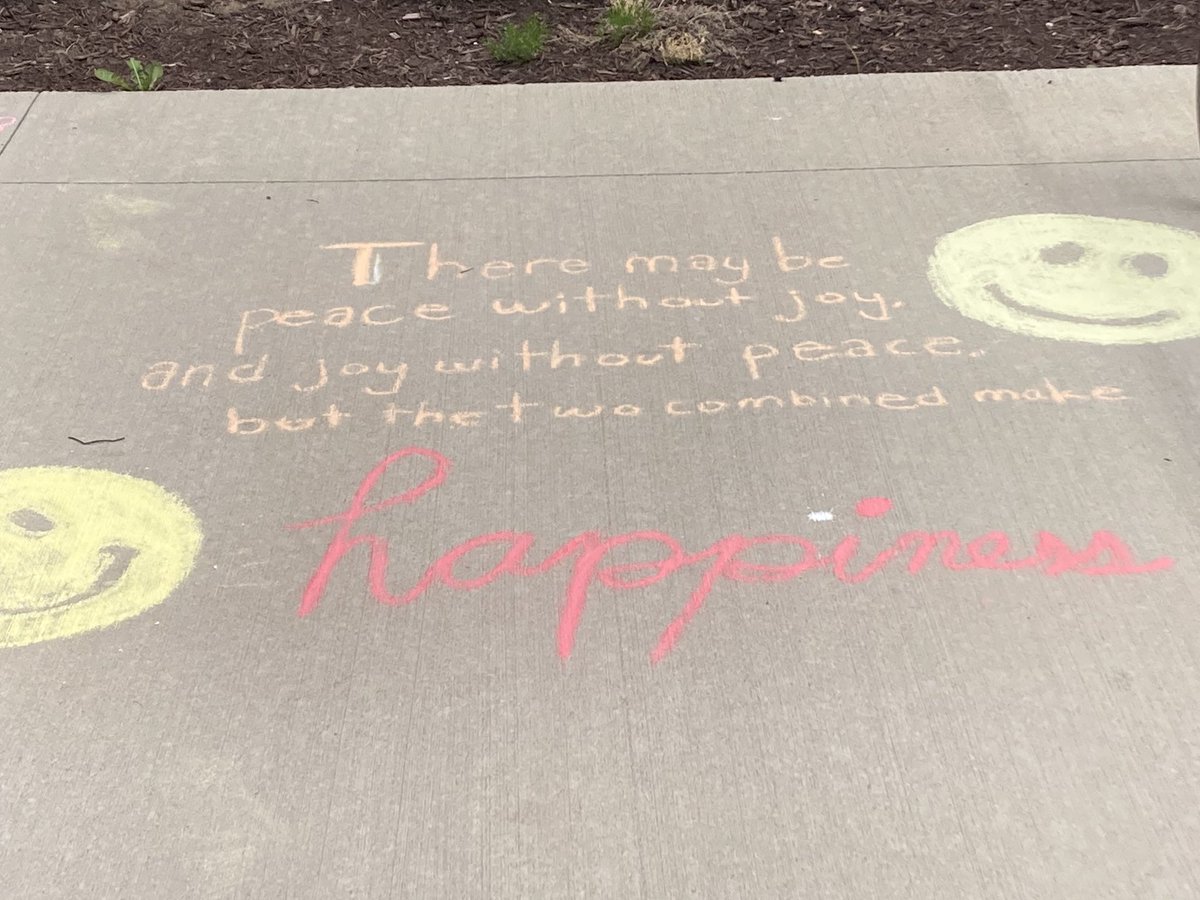 There may be
peace without joy.
and joy without peace.
but the two combined make
happiness